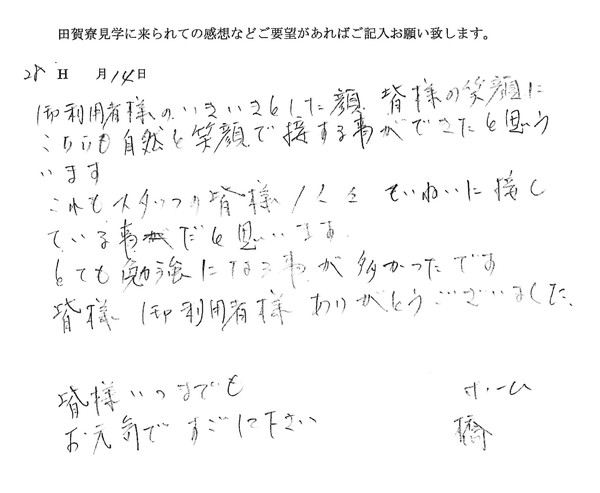 田賀寮見学に来られての感想などご要望があればご記入お願い致します。
28 H 月14日
御利用者様のいきいきとした顔、皆様の笑顔に
こちらも自然と笑顔で接する事ができたと思う
います
これもスタッフの皆様 1人1人 ていねいに接し
ている事がだと思います。
とても勉強になる事が多かったです
皆様、御利用者様 ありがとうございました、
皆様いつまでも
お元気で すごして下さい
ホーム
橋